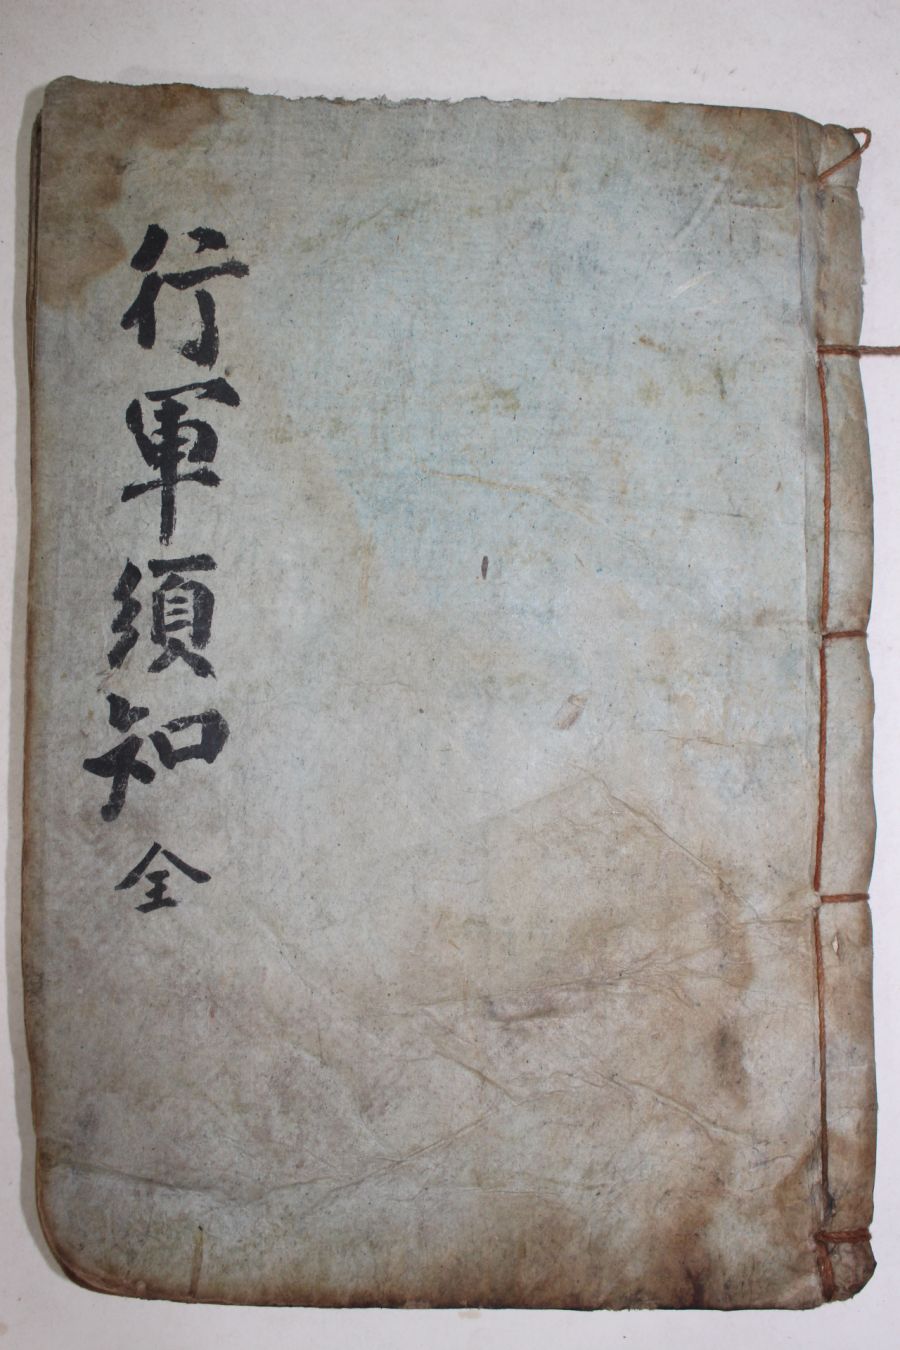 行軍須知 全